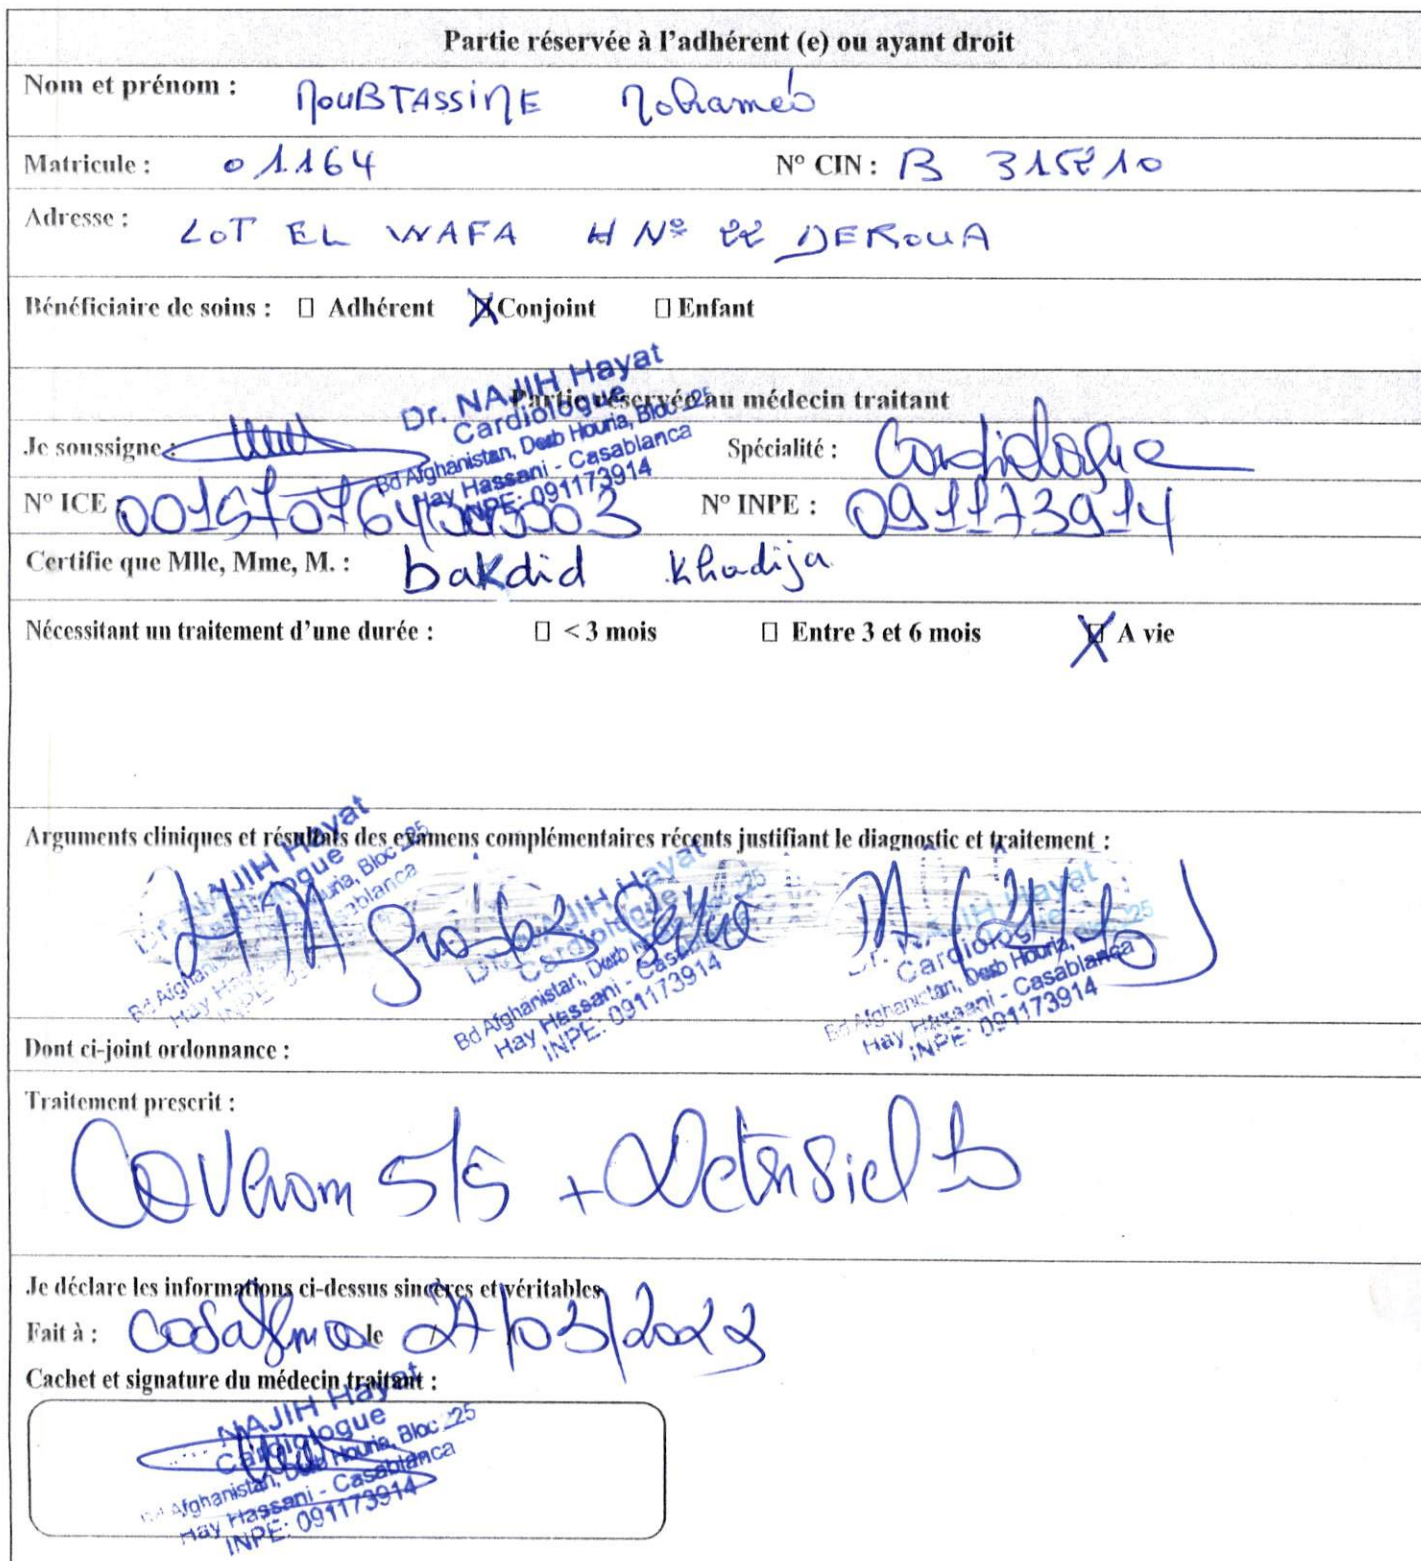 Partie réservée à l'adhérent (e) ou ayant droit
Nom et prénom : MOUBTASSIME Mohamed
Matricule : 01164 N° CIN : B 315210
Adresse : LOT EL WAFA H N° 22 DEROUA
Bénéficiaire de soins : ☐ Adhérent ☒ Conjoint ☐ Enfant
Dr. NAJIH Hayat
Cardiologue
Bd Afghanistan, Derb Houria, Bloc 225
Hay Hassani - Casablanca
INPE: 091173914
Partie réservée au médecin traitant
Je soussigne : Spécialité : Cardiologue
N° ICE : N° INPE : 091173914
Certifie que Mlle, Mme, M. : bakdid Khadija
Nécessitant un traitement d'une durée : ☐ < 3 mois ☐ Entre 3 et 6 mois ☒ A vie
Arguments cliniques et résultats des examens complémentaires récents justifiant le diagnostic et traitement :
Dr. NAJIH Hayat
Cardiologue
Bd Afghanistan, Derb Houria, Bloc 225
Hay Hassani - Casablanca
INPE: 091173914
Dr. NAJIH Hayat
Cardiologue
Bd Afghanistan, Derb
Hay Hassani - Casablanca
INPE: 091173914
Dr. NAJIH Hayat
Cardiologue
Bd Afghanistan, Derb Houria,
Hay Hassani - Casablanca
INPE: 091173914
Dont ci-joint ordonnance :
Traitement prescrit :
COVERAM 5/5 + Detensiel
Je déclare les informations ci-dessus sincères et véritables
Fait à : Casablanca le 27/03/2022
Cachet et signature du médecin traitant :
NAJIH Hayat
Cardiologue
Bd Afghanistan, Derb Houria, Bloc 225
Hay Hassani - Casablanca
INPE: 091173914